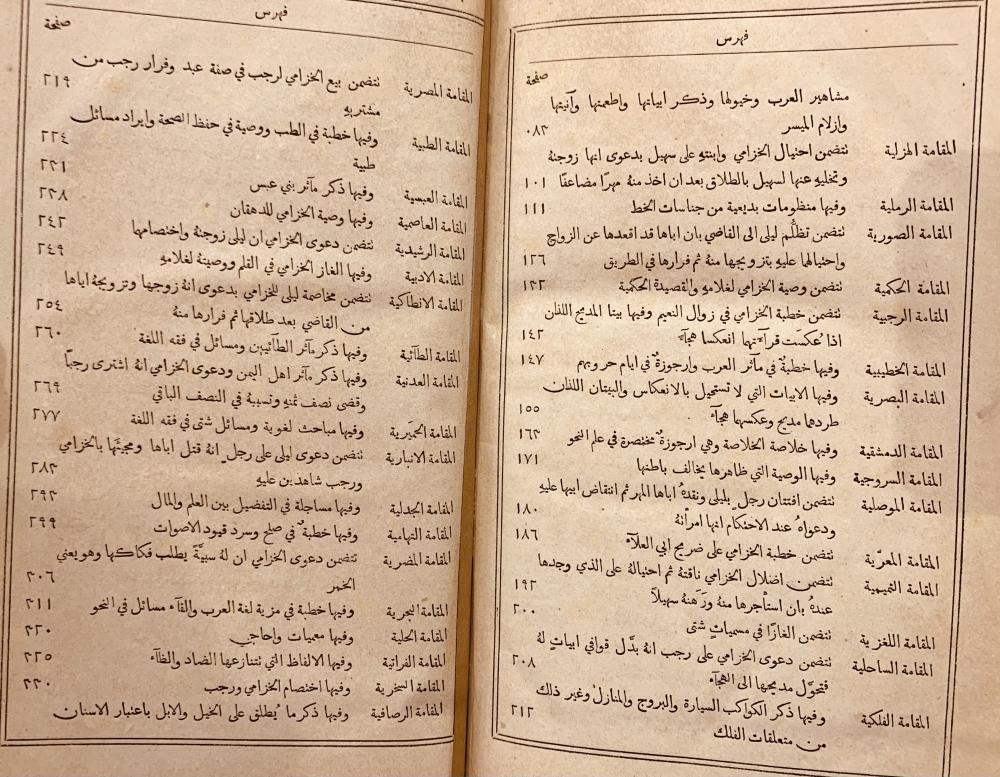 فهرس
صفحة
مشاهير العرب وخيولها وذكر ابياتها واطعمتها وآنيتها
وازلام الميسر ٠٨٣
المقامة الهزلية تتضمن احتيال الخزامي وابنتهِ على سهيل بدعوى انها زوجتهُ
وتخليهِ عنها لسهيل بالطلاق بعد ان اخذ منهُ مهرًا مضاعفًا ١٠١
المقامة الرملية وفيها منظومات بديعية من جناسات الخط ١١١
المقامة الصورية تتضمن تظلُّم ليلى الى القاضي بان اباها قد اقعدها عن الزواج
واحتيالهما عليهِ بتزويجها منهُ ثم فرارها في الطريق ١٢٦
المقامة الحكمية تتضمن وصية الخزامي لغلامهِ والقصيدة الحكمية ١٣٣
المقامة الرجبية تتضمن خطبة الخزامي في زوال النعيم وفيها بيتا المديح اللذان
اذا عُكست قرآءَتهما انعكسا هجآءً ١٤٢
المقامة الخطيبية وفيها خطبةٌ في مآثر العرب وارجوزةٌ في ايام حروبهم ١٤٧
المقامة البصرية وفيها الابيات التي لا تستحيل بالانعكاس والبيتان اللذان
طردهما مديح وعكسهما هجآءٌ ١٥٥
المقامة الدمشقية وفيها خلاصة الخلاصة وهي ارجوزةٌ مختصرة في علم النحو ١٦٣
المقامة السروجية وفيها الوصية التي ظاهرها يخالف باطنها ١٧١
المقامة الموصلية تتضمن افتتان رجلٍ بليلى ونقدهُ اباها المهر ثم انتقاض ابيها عليهِ
ودعواهُ عند الاحتكام انها امرأتهُ ١٨٠
المقامة المعرّية تتضمن خطبة الخزامي على ضريح ابي العلآء ١٨٦
المقامة التميمية تتضمن اضلال الخزامي ناقتهُ ثم احتيالهُ على الذي وجدها
عندهُ بان استأجرها منهُ ورَهَنهُ سهيلًا ١٩٢
المقامة اللغزية تتضمن الغازًا في مسمياتٍ شتى ٢٠٠
المقامة الساحلية تتضمن دعوى الخزامي على رجب انهُ بدَّل قوافي ابيات لهُ
فتحوَّل مديحها الى الهجآء ٢٠٨
المقامة الفلكية وفيها ذكر الكواكب السيارة والبروج والمنازل وغير ذلك
من متعلقات الفلك ٢١٢
فهرس
صفحة
المقامة المصرية تتضمن بيع الخزامي لرجب في صفة عبد وفرار رجب من
مشتريهِ ٢١٩
المقامة الطبية وفيها خطبة في الطب ووصية في حفظ الصحة وايراد مسائل
طبية ٢٢٤
المقامة العبسية وفيها ذكر مآثر بني عبس ٢٣١
المقامة العاصمية وفيها وصية الخزامي للدهقان ٢٣٨
المقامة الرشيدية تتضمن دعوى الخزامي ان ليلى زوجتهُ واختصامهما ٢٤٣
المقامة الادبية وفيها الغاز الخزامي في القلم ووصيتهُ لغلامهِ ٢٤٩
المقامة الانطاكية تتضمن مخاصمة ليلى للخزامي بدعوى انهُ زوجها وتزويجهُ اياها
من القاضي بعد طلاقها ثم فرارها منهُ ٢٥٤
المقامة الطآئية وفيها ذكر مآثر الطآئيين ومسائل في فقه اللغة ٢٦٠
المقامة العدنية وفيها ذكر مآثر اهل اليمن ودعوى الخزامي انهُ اشترى رجبًا
وقضى نصف ثمنهِ وتسبيهُ في النصف الباقي ٢٦٩
المقامة الحِمْيَرية وفيها مباحث لغوية ومسائل شتى في فقه اللغة ٢٧٧
المقامة الانبارية تتضمن دعوى ليلى على رجلٍ انهُ قتل اباها ومجيئَها بالخزامي
ورجب شاهدين عليهِ ٢٨٣
المقامة الجدلية وفيها مساجلة في التفضيل بين العلم والمال ٢٩٣
المقامة التهامية وفيها خطبةٌ في صلح وسرد قيود الاصوات ٢٩٩
المقامة المضرية تتضمن دعوى الخزامي ان لهُ سبيَّةً يطلب فكاكها وهو يعني
الخمر ٣٠٦
المقامة البحرية وفيها خطبة في مزية لغة العرب والقآء مسائل في النحو ٣١١
المقامة الحلية وفيها معميات واحاجي ٣٢٠
المقامة الفراتية وفيها الالفاظ التي تتنازعها الضاد والظآء ٣٢٥
المقامة السخرية وفيها اختصام الخزامي ورجب ٣٣٠
المقامة الرصافية وفيها ذكر ما يُطلق على الخيل والابل باعتبار الاسنان